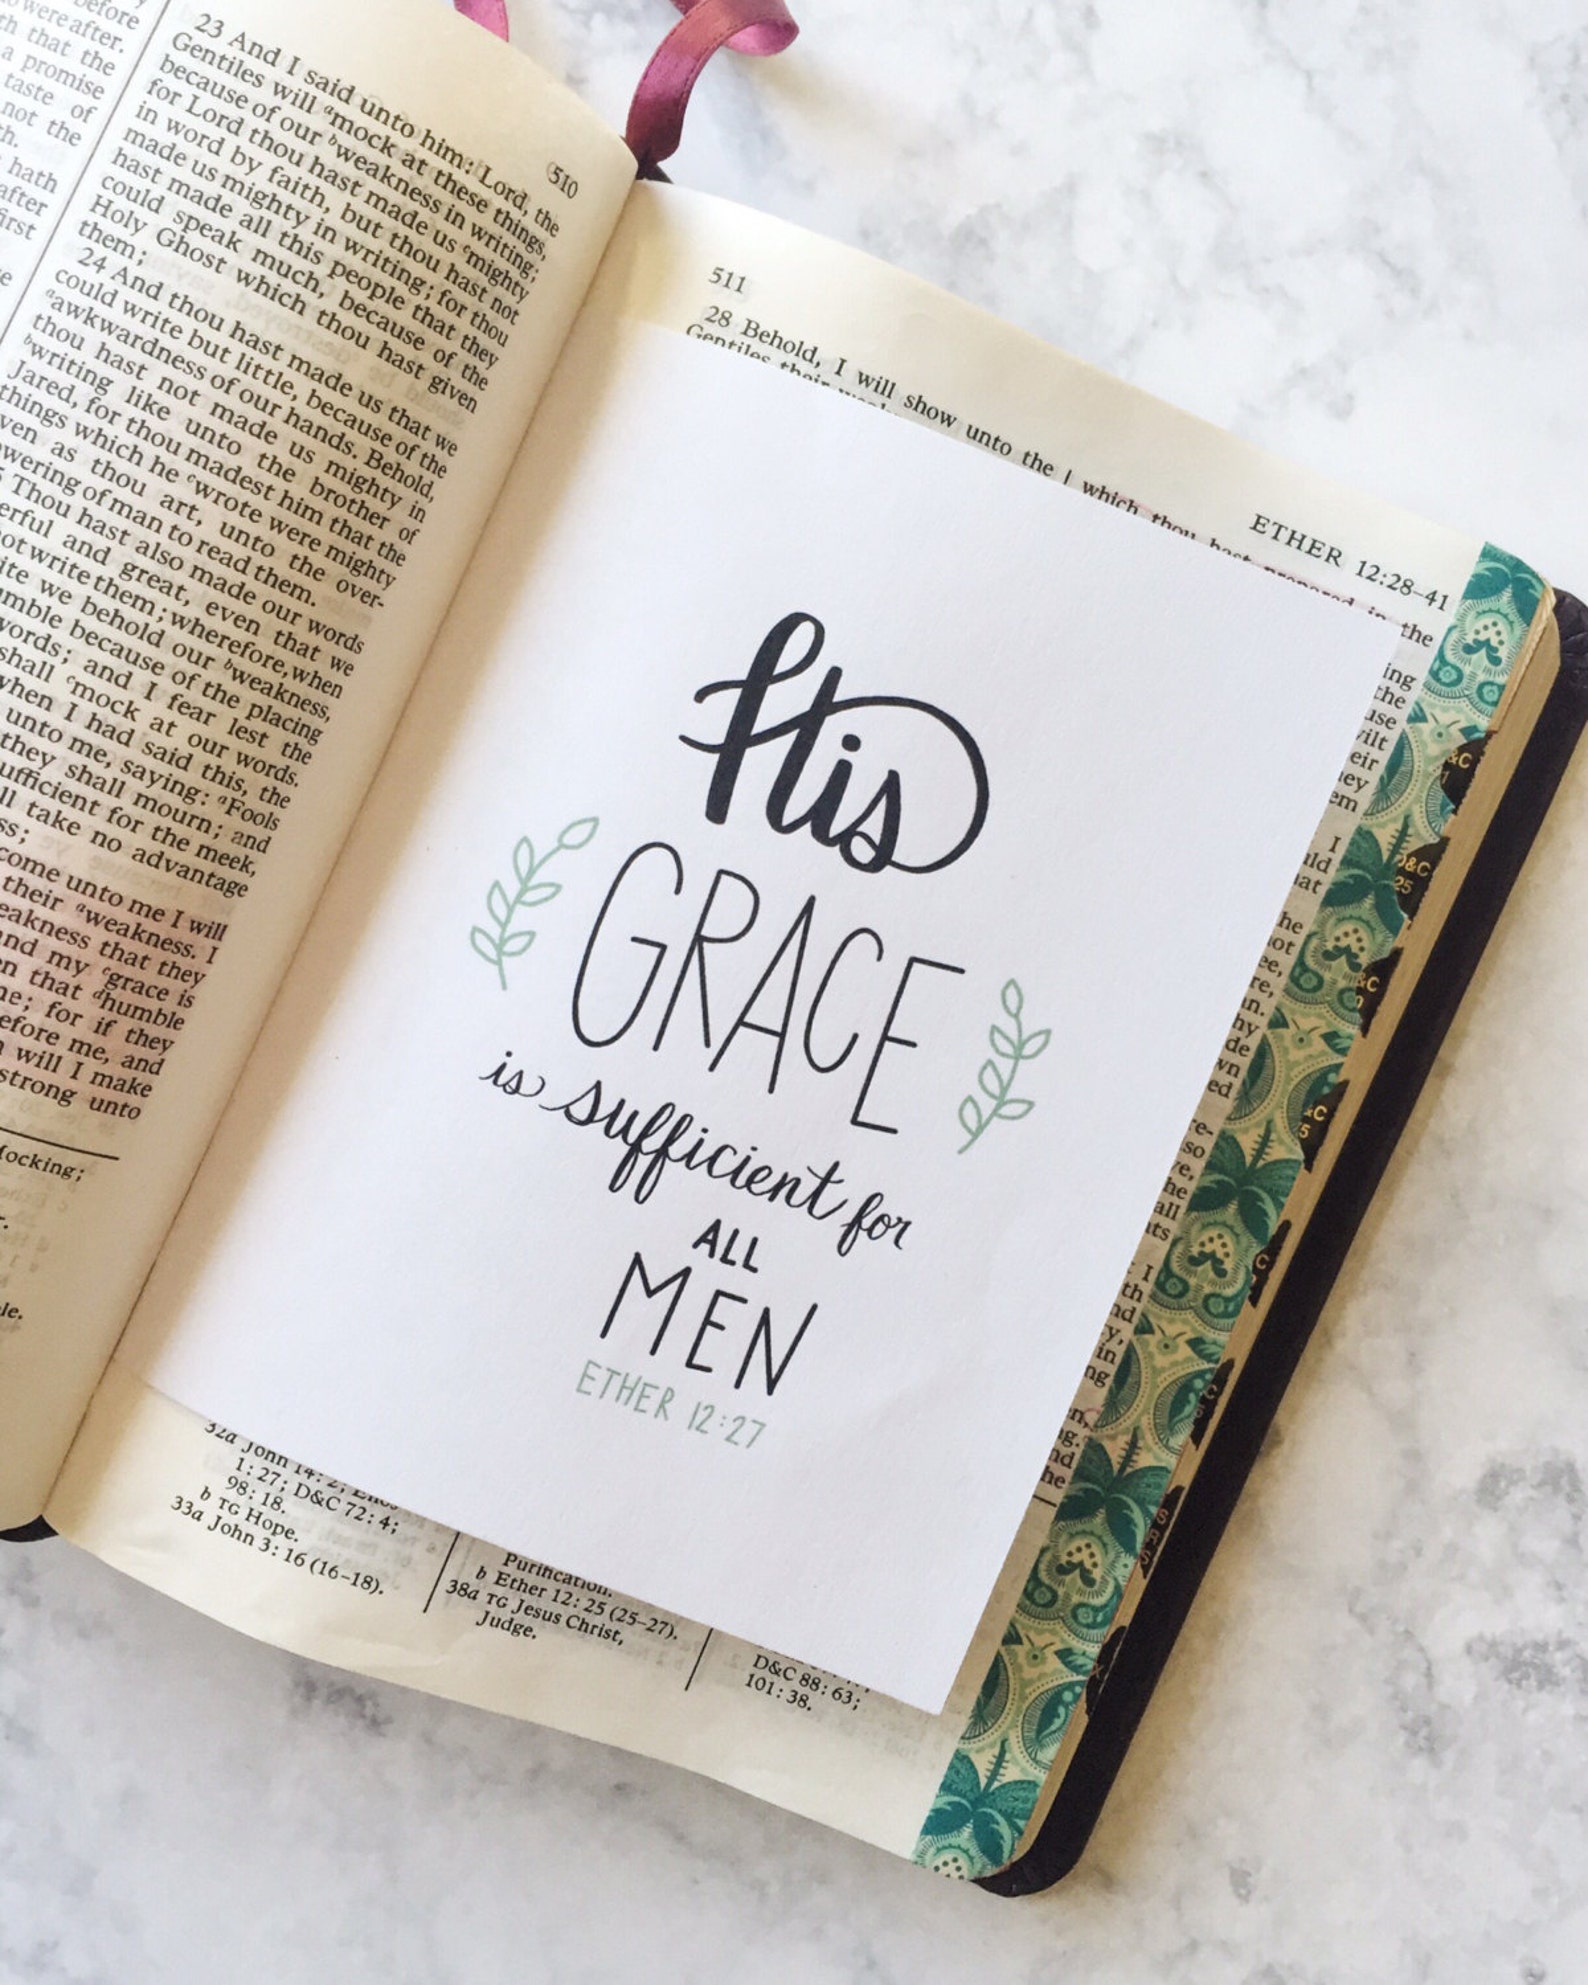 before
were after.
th that the
a promise
taste of
not the
th.
hath
after
first
510
23 And I said unto him: Lord, the
Gentiles will amock at these things,
because of our bweakness in writing;
for Lord thou hast made us cmighty
in word by faith, but thou hast not
made us mighty in writing; for thou
hast made all this people that they
could speak much, because of the
Holy Ghost which thou hast given
them;
24 And thou hast made us that we
could write but little, because of the
aawkwardness of our hands. Behold,
thou hast not made us mighty in
bwriting like unto the brother of
Jared, for thou madest him that the
things which he cwrote were mighty
ven as thou art, unto the over-
wering of man to read them.
Thou hast also made our words
erful and great, even that we
ot write them; wherefore, when
ite we behold our bweakness,
mble because of the placing
words; and I fear lest the
shall cmock at our words.
when I had said this, the
unto me, saying: aFools
they shall mourn; and
ufficient for the meek,
ll take no advantage
ss;
come unto me I will
their aweakness. I
eakness that they
nd my cgrace is
en that dhumble
me; for if they
efore me, and
n will I make
strong unto
Mocking;
511
ETHER 12:28–41
28 Behold, I will show unto the | which thou hast prepared in the
Gentiles their
His
GRACE
is sufficient for
ALL
MEN
ETHER 12:27
32a John 14:2; Enos
1:27; D&C 72:4;
98:18.
b TG Hope.
33a John 3:16 (16–18).
Purification.
b Ether 12:25 (25–27).
38a TG Jesus Christ,
Judge.
D&C 88:63;
101:38.
D&C
25